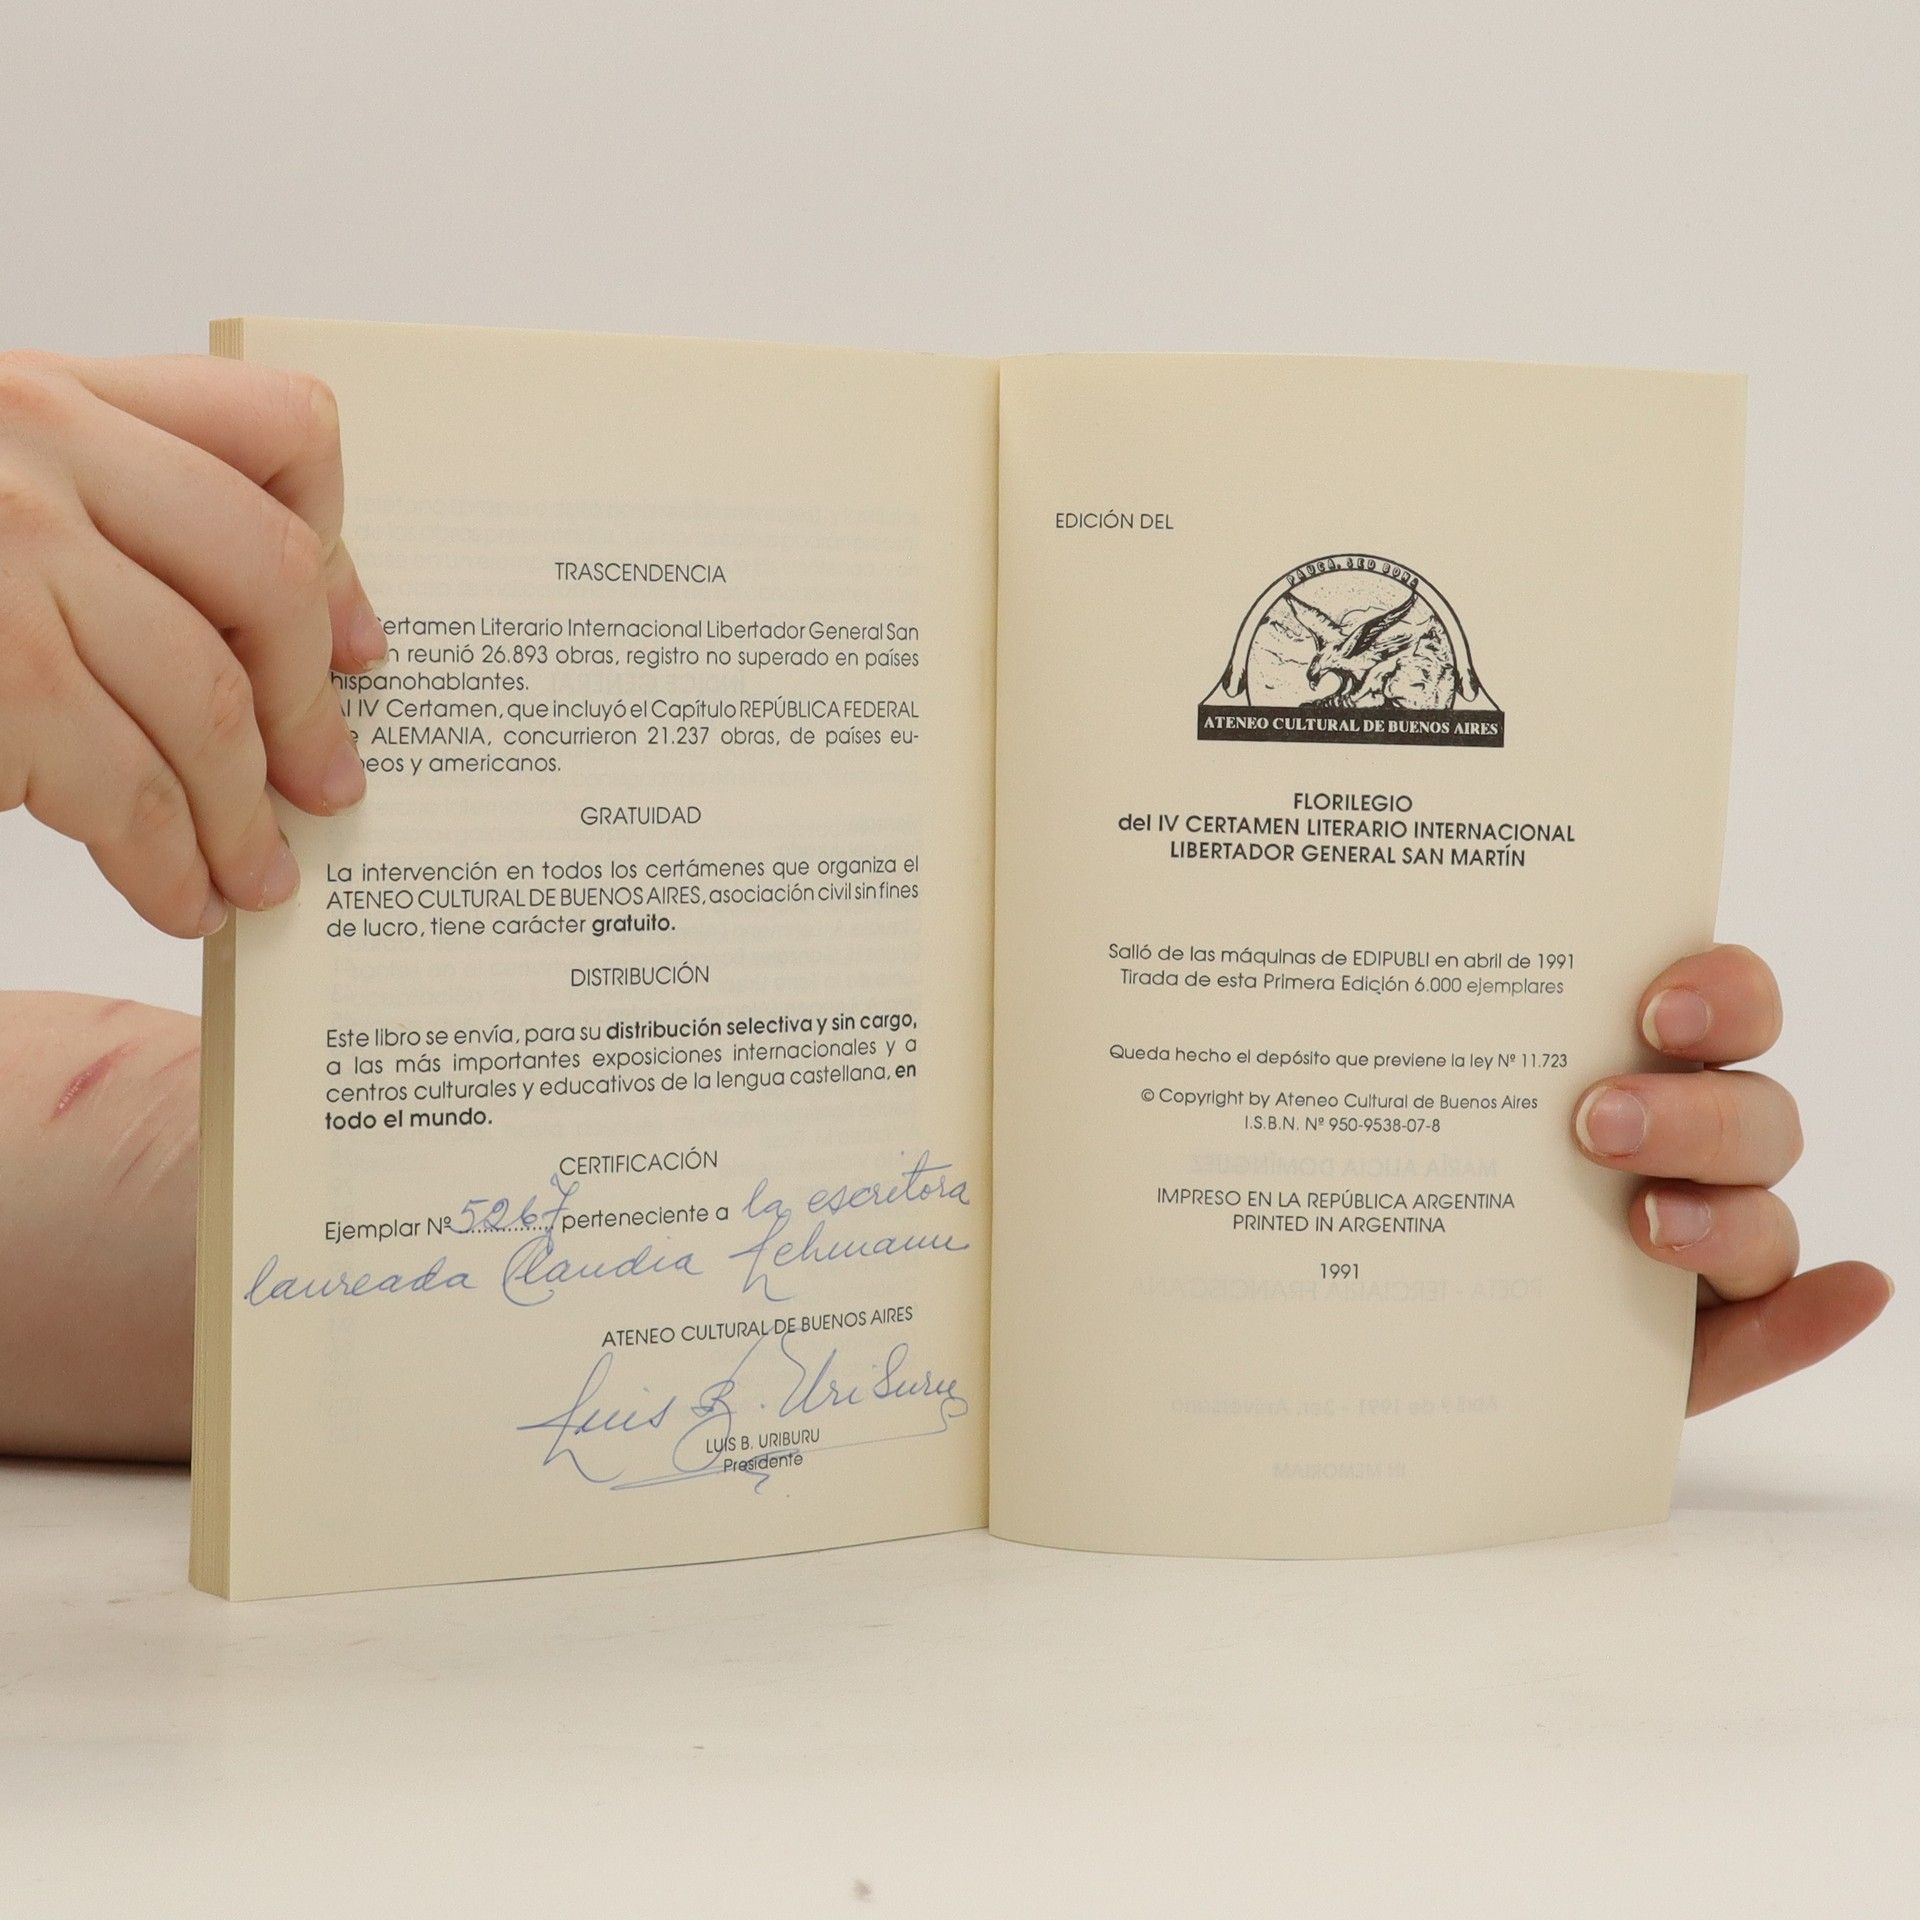 TRASCENDENCIA
ertamen Literario Internacional Libertador General San
n reunió 26.893 obras, registro no superado en países
hispanohablantes.
Al IV Certamen, que incluyó el Capítulo REPÚBLICA FEDERAL
e ALEMANIA, concurrieron 21.237 obras, de países eu-
peos y americanos.
GRATUIDAD
La intervención en todos los certámenes que organiza el
ATENEO CULTURAL DE BUENOS AIRES, asociación civil sin fines
de lucro, tiene carácter gratuito.
DISTRIBUCIÓN
Este libro se envía, para su distribución selectiva y sin cargo,
a las más importantes exposiciones internacionales y a
centros culturales y educativos de la lengua castellana, en
todo el mundo.
CERTIFICACIÓN
Ejemplar Nº 5267 perteneciente a la escritora
laureada Claudia Lehmann
ATENEO CULTURAL DE BUENOS AIRES
Luis B. Uriburu
LUIS B. URIBURU
Presidente
EDICIÓN DEL
PAUCA, SED BONA
ATENEO CULTURAL DE BUENOS AIRES
FLORILEGIO
del IV CERTAMEN LITERARIO INTERNACIONAL
LIBERTADOR GENERAL SAN MARTÍN
Salió de las máquinas de EDIPUBLI en abril de 1991
Tirada de esta Primera Edición 6.000 ejemplares
Queda hecho el depósito que previene la ley Nº 11.723
© Copyright by Ateneo Cultural de Buenos Aires
I.S.B.N. Nº 950-9538-07-8
IMPRESO EN LA REPÚBLICA ARGENTINA
PRINTED IN ARGENTINA
1991